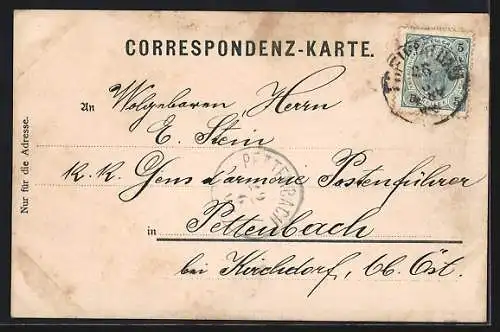 CORRESPONDENZ-KARTE.
5
An Wolgeboren, Herrn
E. Stein
K. K. Gens d'armerie Postenführer
PETTENBACH
in Pettenbach
bei Kirchdorf, Ob. Öst.
Nur für die Adresse.